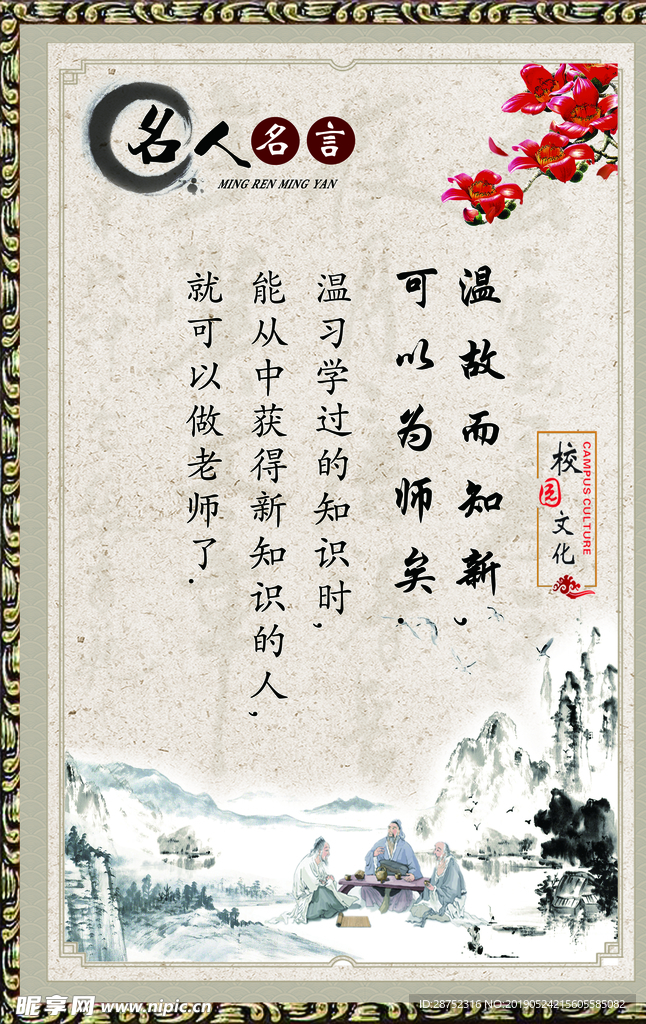 名人名言
MING REN MING YAN
温故而知新，
可以为师矣.
温习学过的知识时，
能从中获得新知识的人，
就可以做老师了.
校园文化
CAMPUS CULTURE
昵享网 www.nipic.cn
ID:28752316 NO:20190524215605585082